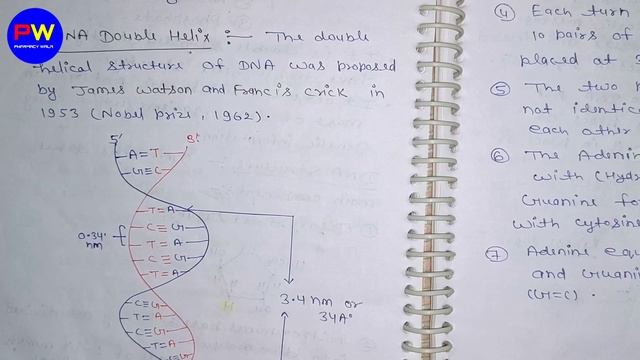 PW
PHARMACY WALA
NA Double Helix :- The double
helical structure of DNA was proposed
by James Watson and Francis Crick in
1953 (Nobel prize, 1962).
5'
3'
A=T
G≡C
T=A
C≡G
T=A
C≡G
T=A
0.34
nm
3.4 nm or
34A°
C≡G
T=A
C≡G
T=A
C≡G
④ Each turn
10 pairs of
placed at 3
⑤ The two
not identic
each other
⑥ The Adenin
with (Hydr
Guanine fo
with cytosine
⑦ Adenine equ
and Guani
(G=C).